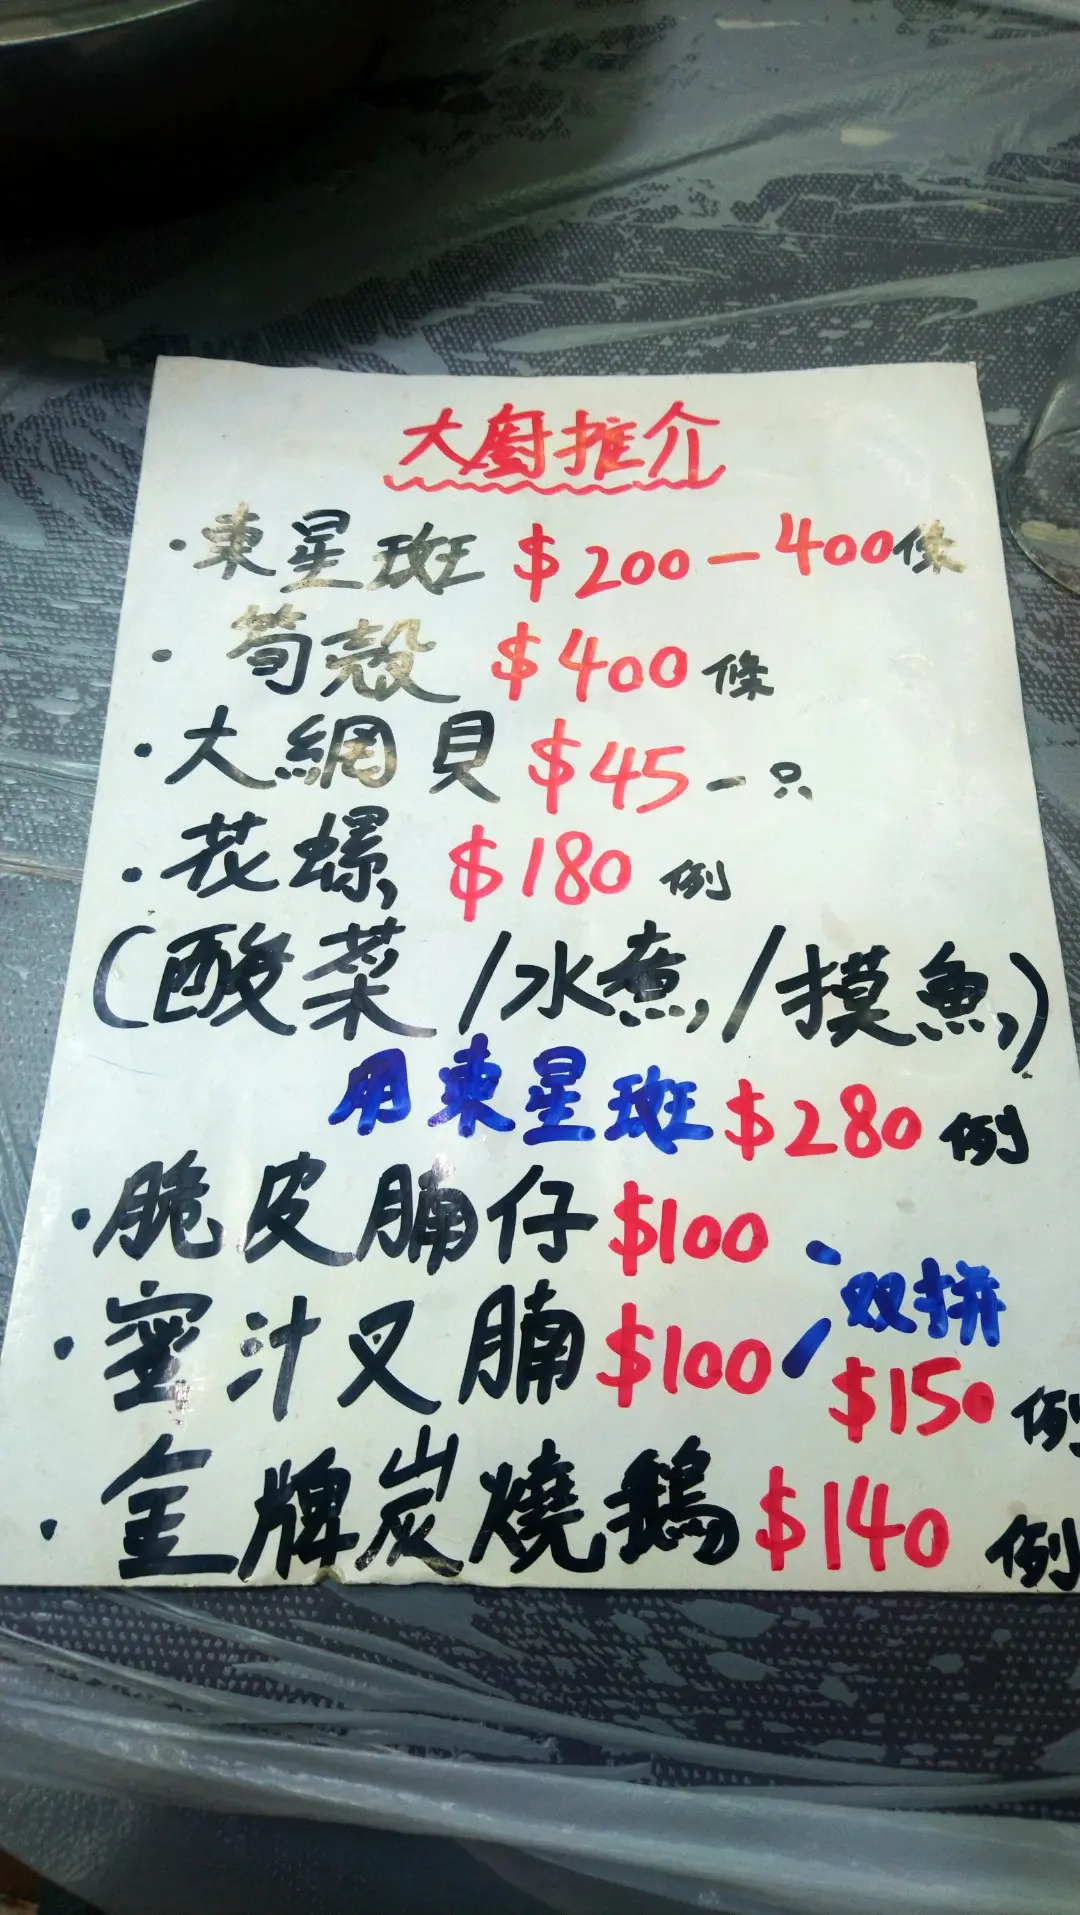 大廚推介
·東星斑 $200-400條
·筍殼 $400條
·大網貝 $45一只
·花螺 $180例
(酸菜/水煮/摸魚)
用東星斑 $280例
·脆皮腩仔 $100
双拼
·蜜汁叉腩 $100
$150例
·金牌炭燒鵝 $140例